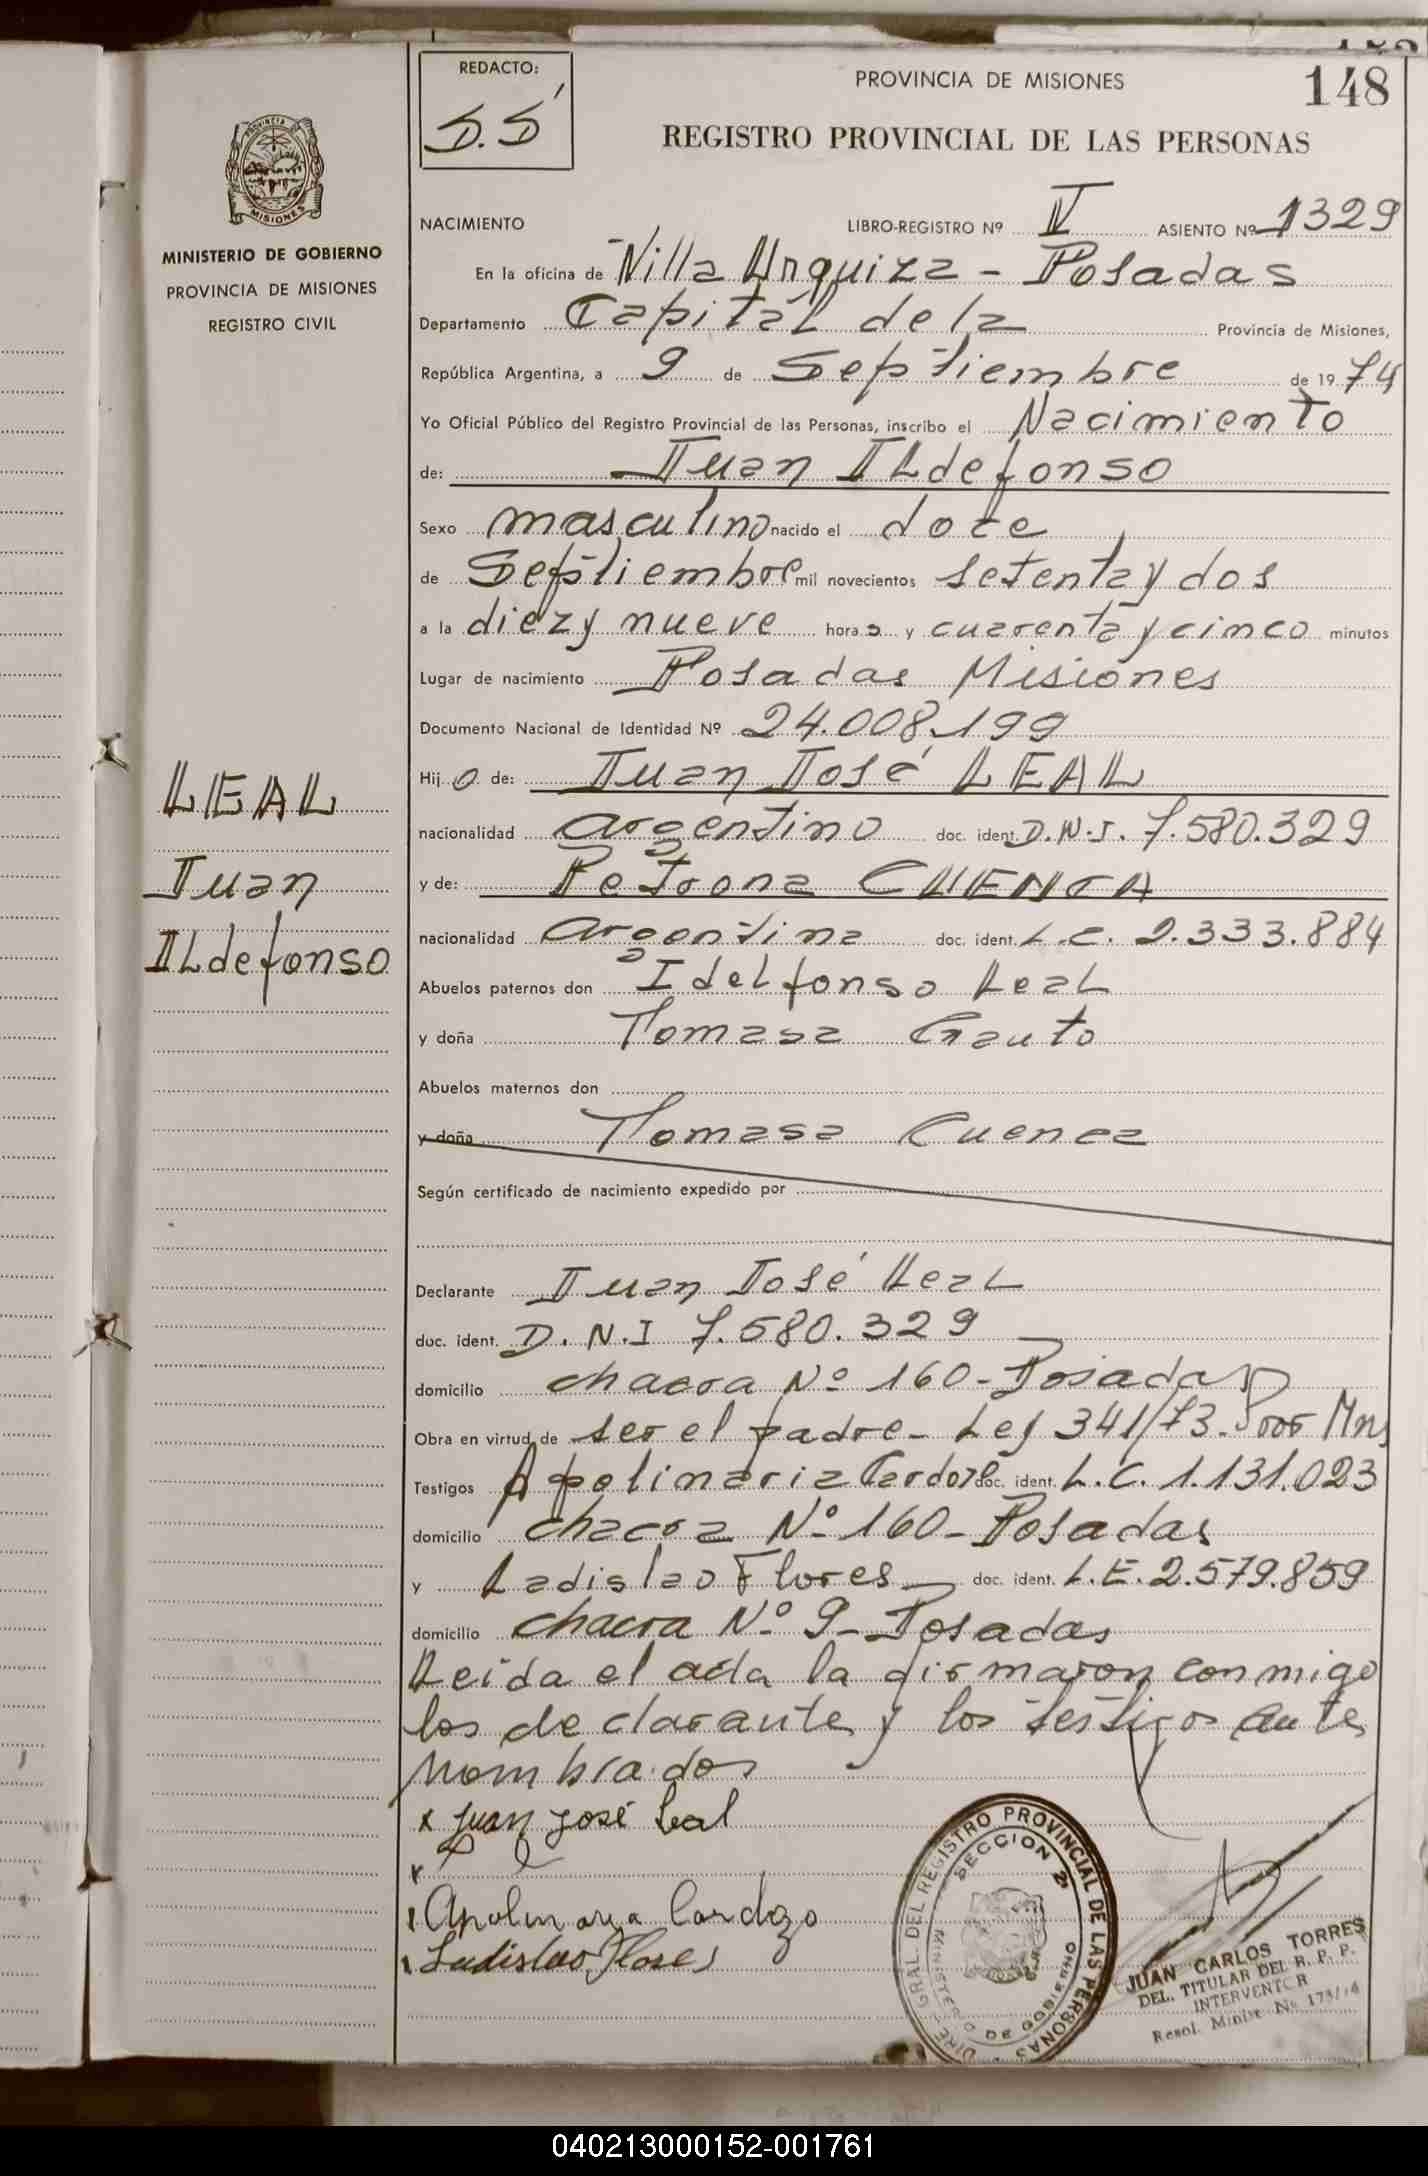 REDACTO:
S.S
PROVINCIA DE MISIONES
148
REGISTRO PROVINCIAL DE LAS PERSONAS
PROVINCIA DE
MISIONES
MINISTERIO DE GOBIERNO
PROVINCIA DE MISIONES
REGISTRO CIVIL
NACIMIENTO LIBRO-REGISTRO Nº IV ASIENTO Nº 1329
En la oficina de Villa Urquiza - Posadas
Departamento Capital de la Provincia de Misiones,
República Argentina, a 9 de Septiembre de 1974
Yo Oficial Público del Registro Provincial de las Personas, inscribo el Nacimiento
de: Juan ILdefonso
Sexo masculino nacido el doce
de Septiembre mil novecientos setenta y dos
a la diez y nueve horas y cuarenta y cinco minutos
Lugar de nacimiento Posadas Misiones
Documento Nacional de Identidad Nº 24.008.199
Hijo de: Juan José LEAL
nacionalidad argentino doc. ident. D.N.I. 7.580.329
y de: Petrona CUENCA
nacionalidad argentina doc. ident. L.C. 2.333.884
Abuelos paternos don Idelfonso Leal
y doña Tomasa Gauto
Abuelos maternos don
y doña Tomasa Cuenca
Según certificado de nacimiento expedido por
Declarante Juan José Leal
doc. ident. D.N.I 7.580.329
domicilio chacra Nº 160 - Posadas
Obra en virtud de ser el padre - Ley 341/73. Mns
Testigos Apolinaria Cardozo doc. ident. L.C. 1.131.023
domicilio chacra Nº 160 - Posadas
y Ladislao Flores doc. ident. L.E. 2.579.859
domicilio chacra Nº 9 - Posadas
Leida el acta la firmaron conmigo
los declarante y los testigos ante
nombrados
x Juan José Leal
x
Apolinaria Cardozo
Ladislao Flores
LEAL
Juan
ILdefonso
DIRE. GRAL. DEL REGISTRO PROVINCIAL DE LAS PERSONAS
SECCION 2ª
MINISTERIO DE GOBIERNO
JUAN CARLOS TORRES
DEL. TITULAR DEL R. P. P.
INTERVENTOR
Resol. Minist. Nº 173/74
040213000152-001761